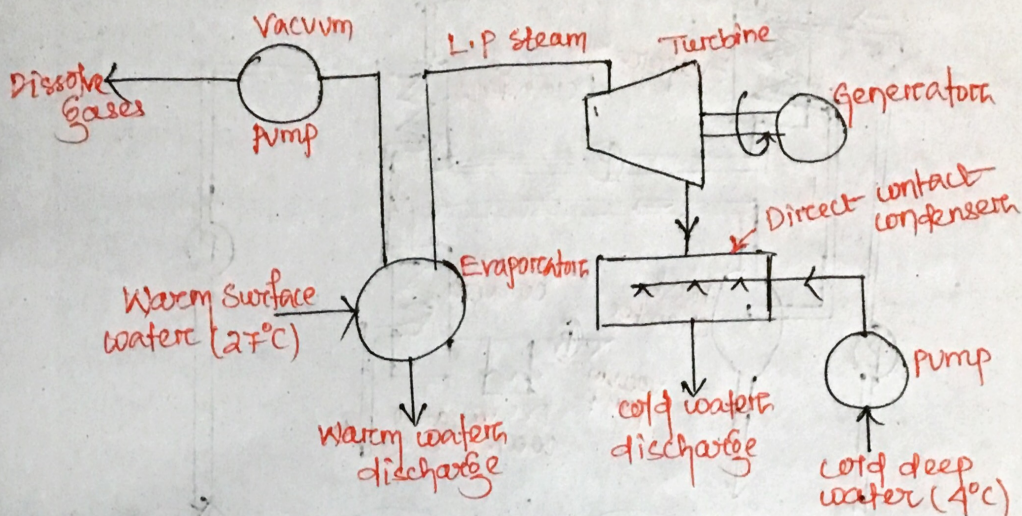 Vacuum
Pump
Dissolve
gases
L.P steam
Turbine
Generator
Direct contact
condenser
Evaporator
Warm surface
water (27°C)
Warm water
discharge
cold water
discharge
Pump
cold deep
water (4°C)